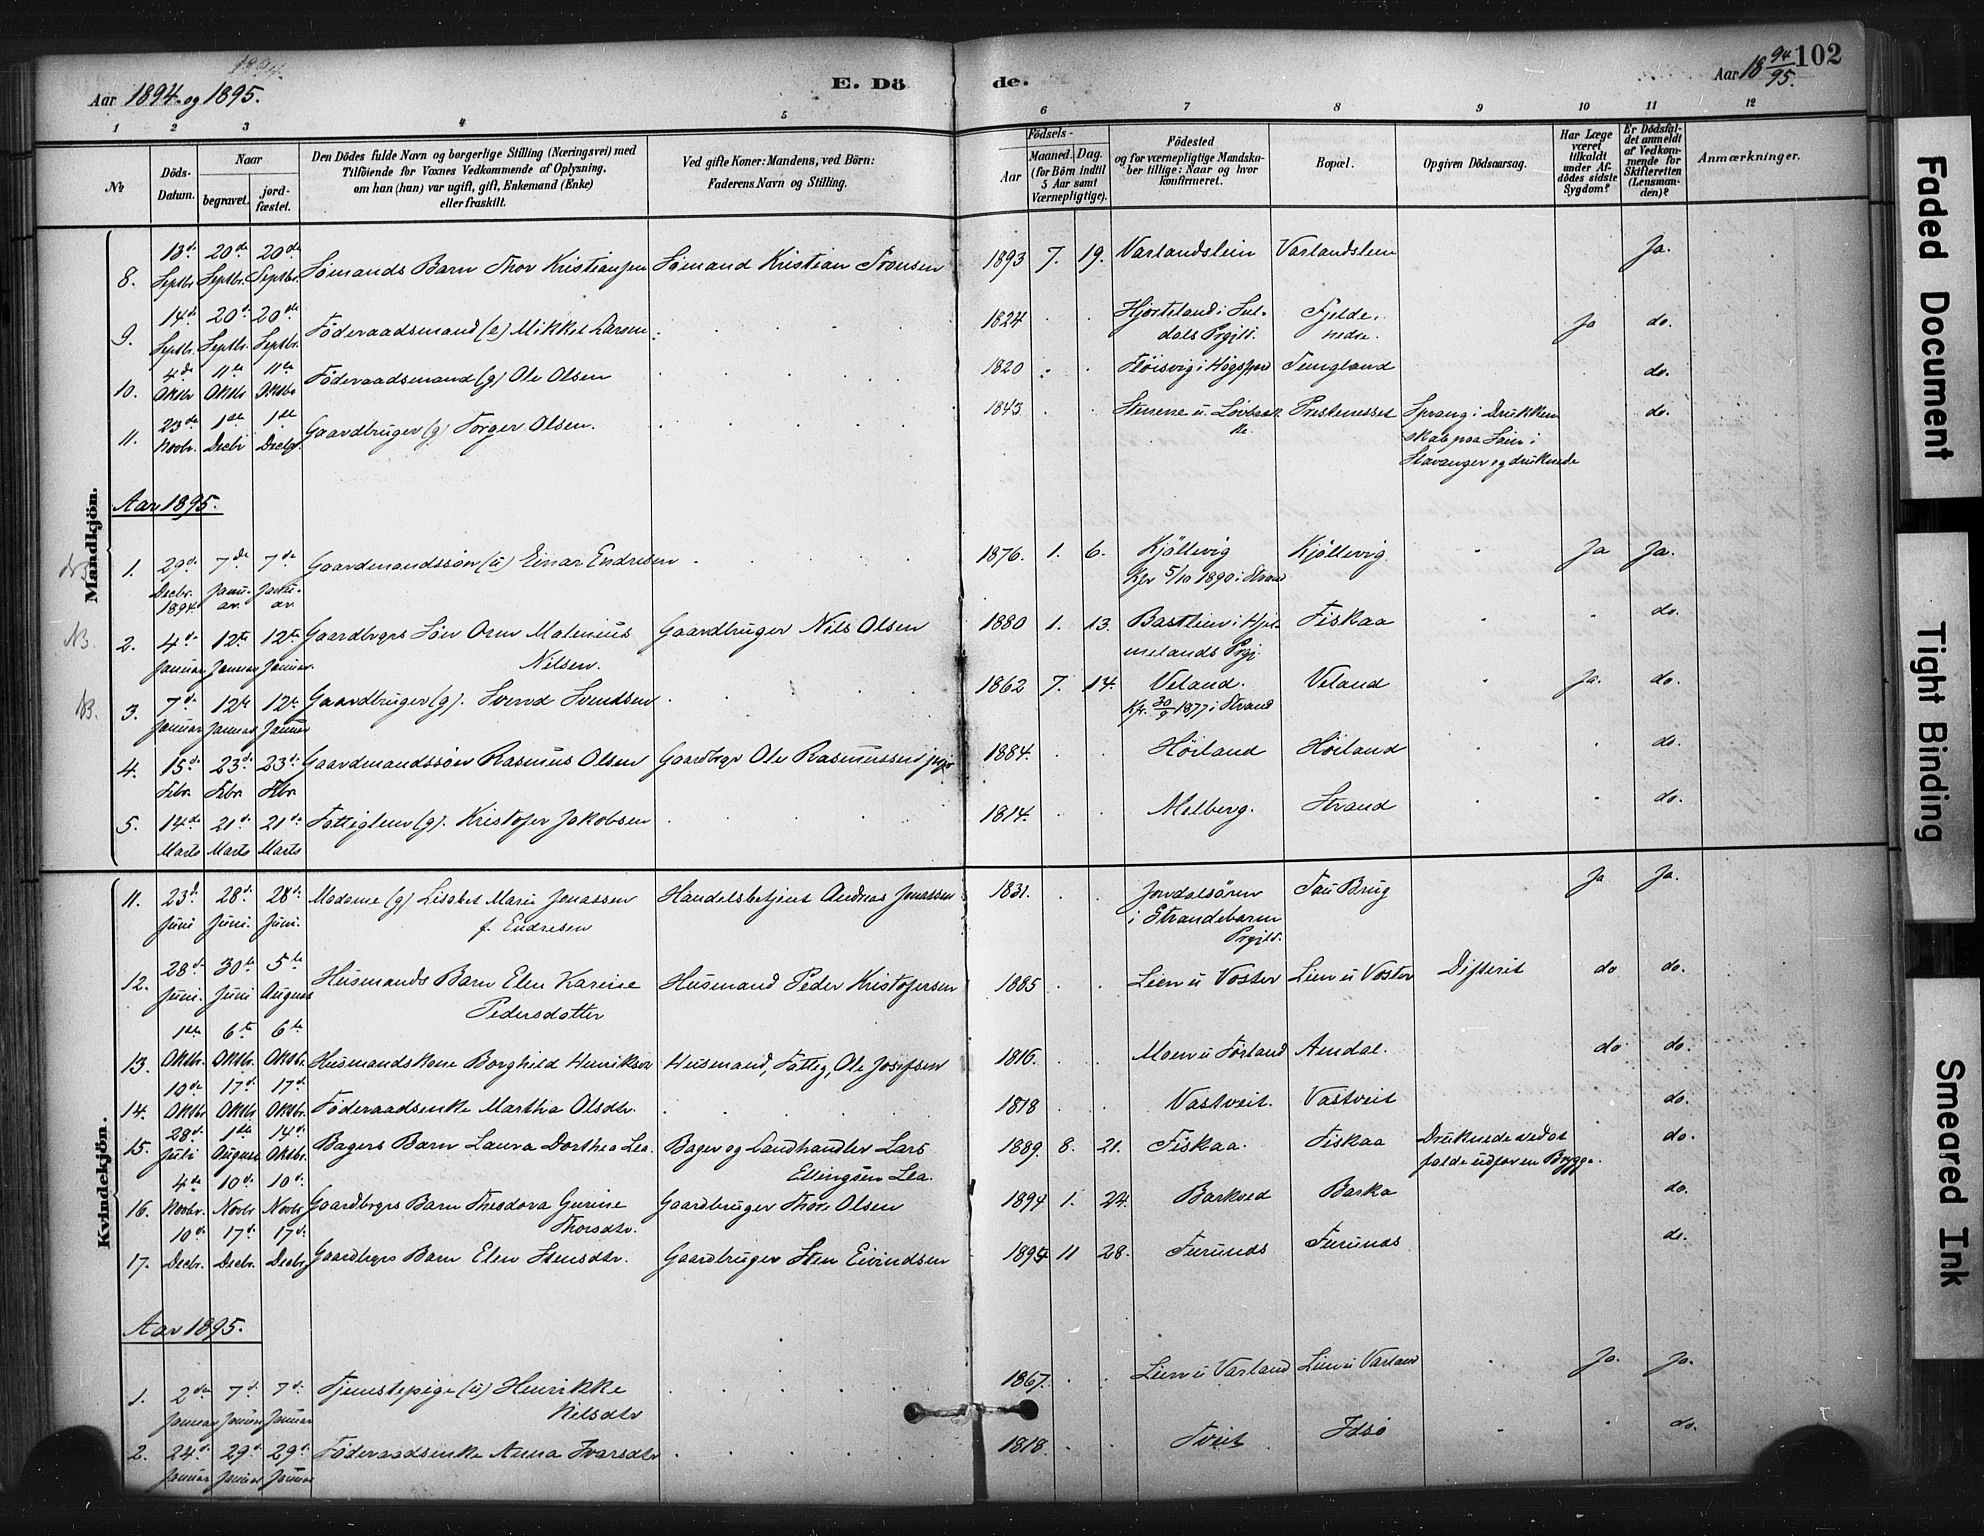 Aar 1894 og 1895.
1894.
E. Dö
de.
Aar 18 94/95.
102
1 2 3 4 5 6 7 8 9 10 11 12
No
Döds-
Datum.
Naar
begravet.
jord-
fæstet.
Den Dödes fulde Navn og borgerlige Stilling (Næringsvei) med
Tilföiende for Voxnes Vedkommende af Oplysning,
om han (hun) var ugift, gift, Enkemand (Enke)
eller fraskilt.
Ved gifte Koner: Mandens, ved Börn:
Faderens Navn og Stilling.
Födsels-
Aar
Maaned. Dag.
(for Börn indtil
5 Aar samt
Værnepligtige).
Födested
og for værnepligtige Mandska-
ber tillige: Naar og hvor
konfirmeret.
Bopæl.
Opgiven Dödsaarsag.
Har Læge
været
tilkaldt
under Af-
dödes sidste
Sygdom?
Er Dödsfal-
det anmeldt
af Vedkom-
mende for
Skifteretten
(Lensman-
den)?
Anmærkninger.
Mandkjön.
8. 13de Septbr. 20de Septbr. 20de Septbr. Sømands Barn Thor Kristiansen Sømand Kristian Svensen 1893 7. 19. Varlandslein Varlandslein Ja.
9. 14de Septbr. 20de Septbr. 20de Septbr. Føderaadsmand (e) Mikkel Larsen 1824 Hjorteland i Sul-
dals Prgjld. Fjelde, nedre. Ja do.
10. 4de Oktbr 11te Oktbr 11te Oktbr Føderaadsmand (g) Ole Olsen 1820 Fløisvig i Høgsfjord Tungland do.
11. 23de Novbr. 1ste Decbr 1ste Decbr. Gaardbruger (g) Torger Olsen. 1843 Stenene u. Løvbræk-
ke. Prestenesset Sprang i Drukken
skab paa Søen i
Stavanger og druknede do.
Aar 1895.
1. 29de Decbr. 1894. 7de Janu-
ar. 7de Janu-
ar. Gaardmandssøn (u) Einar Endresen 1876. 1. 6. Kjöllevig
Kfr 5/10 1890 i Strand Kjöllevig Ja Ja.
NB. 2. 4de Januar 12te Januar 12te Januar. Gaardbrgrs Søn Orm Malenius
Nilsen. Gaardbruger Nils Olsen 1880 1. 13. Bastlien i Hjel-
melands Prgj. Fiskaa do.
NB. 3. 7de Januar 12te Januar 12te Januar Gaardbruger (g). Svend Svendsen 1862 7. 14. Veland.
Kfr. 30/9 1877 i Strand Veland Ja. do.
4. 15de Febr. 23de Febr. 23de Febr. Gaardmandssøn Rasmus Olsen Gaardbrgr Ole Rasmussen 1884. Høiland Høiland do.
5. 14de Marts 21de Marts 21de Marts Fattiglem (g). Kristofer Jakobsen 1814. Melberg. Strand do.
Kvindekjön.
11. 23de Juni 28de Juni. 28de Juni. Madame (g) Lisabet Marie Jonassen
f. Endresen Handelsbetjent Andreas Jonassen 1831. Jondalsören
i Strandebarm
Prgjld. Tau Brug Ja Ja.
12. 28de Juni. 30te Juni 5te August Husmands Barn Elen Karine
Pedersdatter Husmand Peder Kristofersen 1885 Lien u Voster Lien u Voster Difterit do do.
13. 1ste Oktbr. 6te Oktbr. 6te Oktbr. Husmandskone Borghild Henriksdr Husmand, Fattig, Ole Josefsen 1816. Moen u Førland Amdal. do do.
14. 10de Oktbr 17de Oktbr 17de Oktbr. Føderaadsenke Martha Olsdtr. 1818 Vastveit. Vastveit do.
15. 28de Juli 1ste August 14de Oktbr. Bagers Barn Laura Dorthea Lea. Bager og Landhandler Lars
Ellingsen Lea. 1889. 8. 21. Fiskaa. Fiskaa Druknede ved at
falde udfor en Brygge. do.
16. 4de Novbr. 10de Novbr 10de Novbr Gaardbrgrs Barn Theodora Gurine
Thorsdtr. Gaardbruger Thore Olsen 1894 1. 24. Barkved Barka do.
17. 10de Decbr. 17de Decbr. 17de Decbr Gaardbrgrs Barn Elen Stensdtr. Gaardbruger Sten Eivindsen 1894 11 28. Furunds Furunds do.
Aar 1895.
1. 2den Januar 7de Januar 7de Januar Tjenstepige (u) Henrikke
Nilsdtr 1867. Lien u Varland Lien u Varland Ja. Ja.
2. 24de Januar 29de Januar 29de Januar Føderaadsenke Anna Ivarsdtr 1818. Tveit Idsö do.
Faded Document
Tight Binding
Smeared Ink